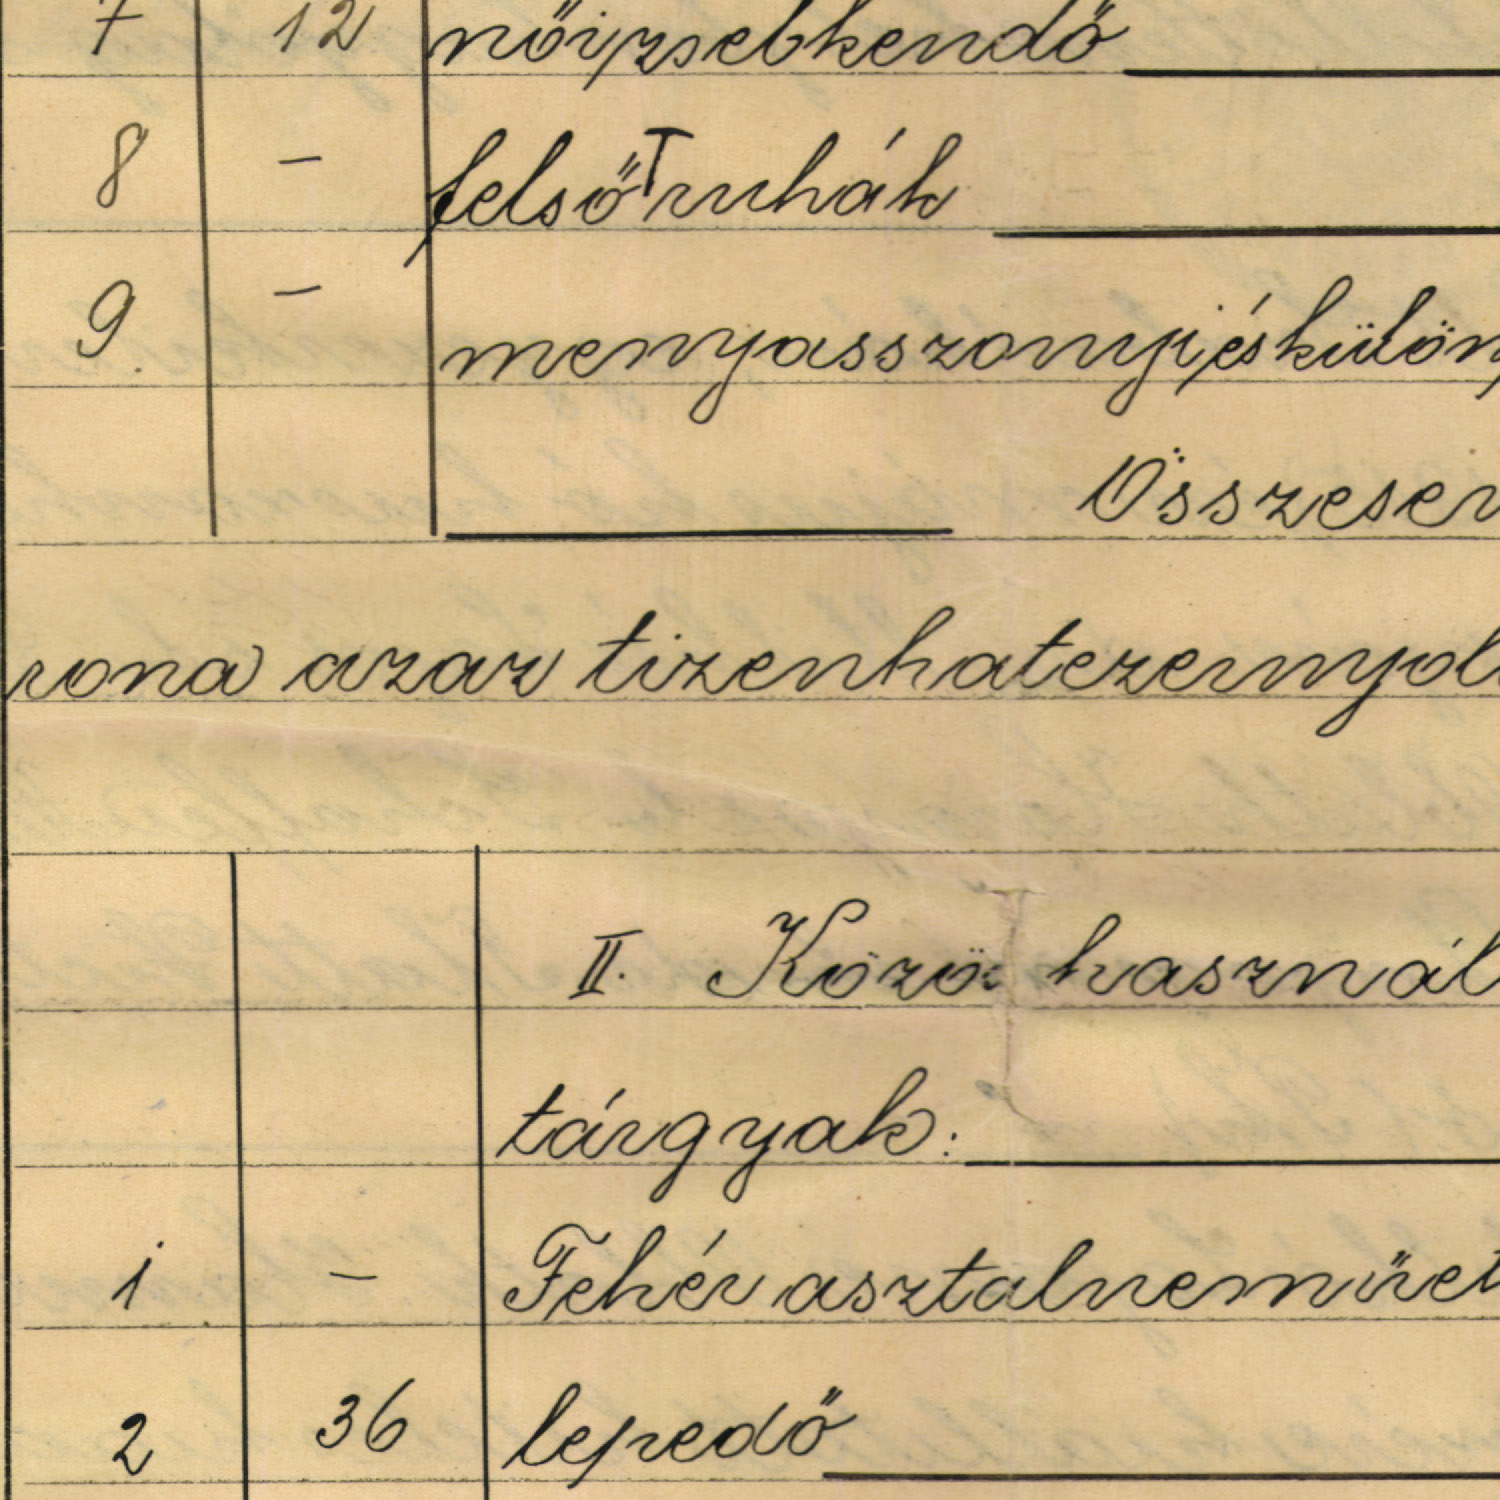 7 12 női zsebkendő
8 — felső ruhák
9 — menyasszonyi és külön
Összesen
rona azaz tizenhatezernyol
II. Közös használ
tárgyak:
1 — Fehér asztalneműet
2 36 lepedő